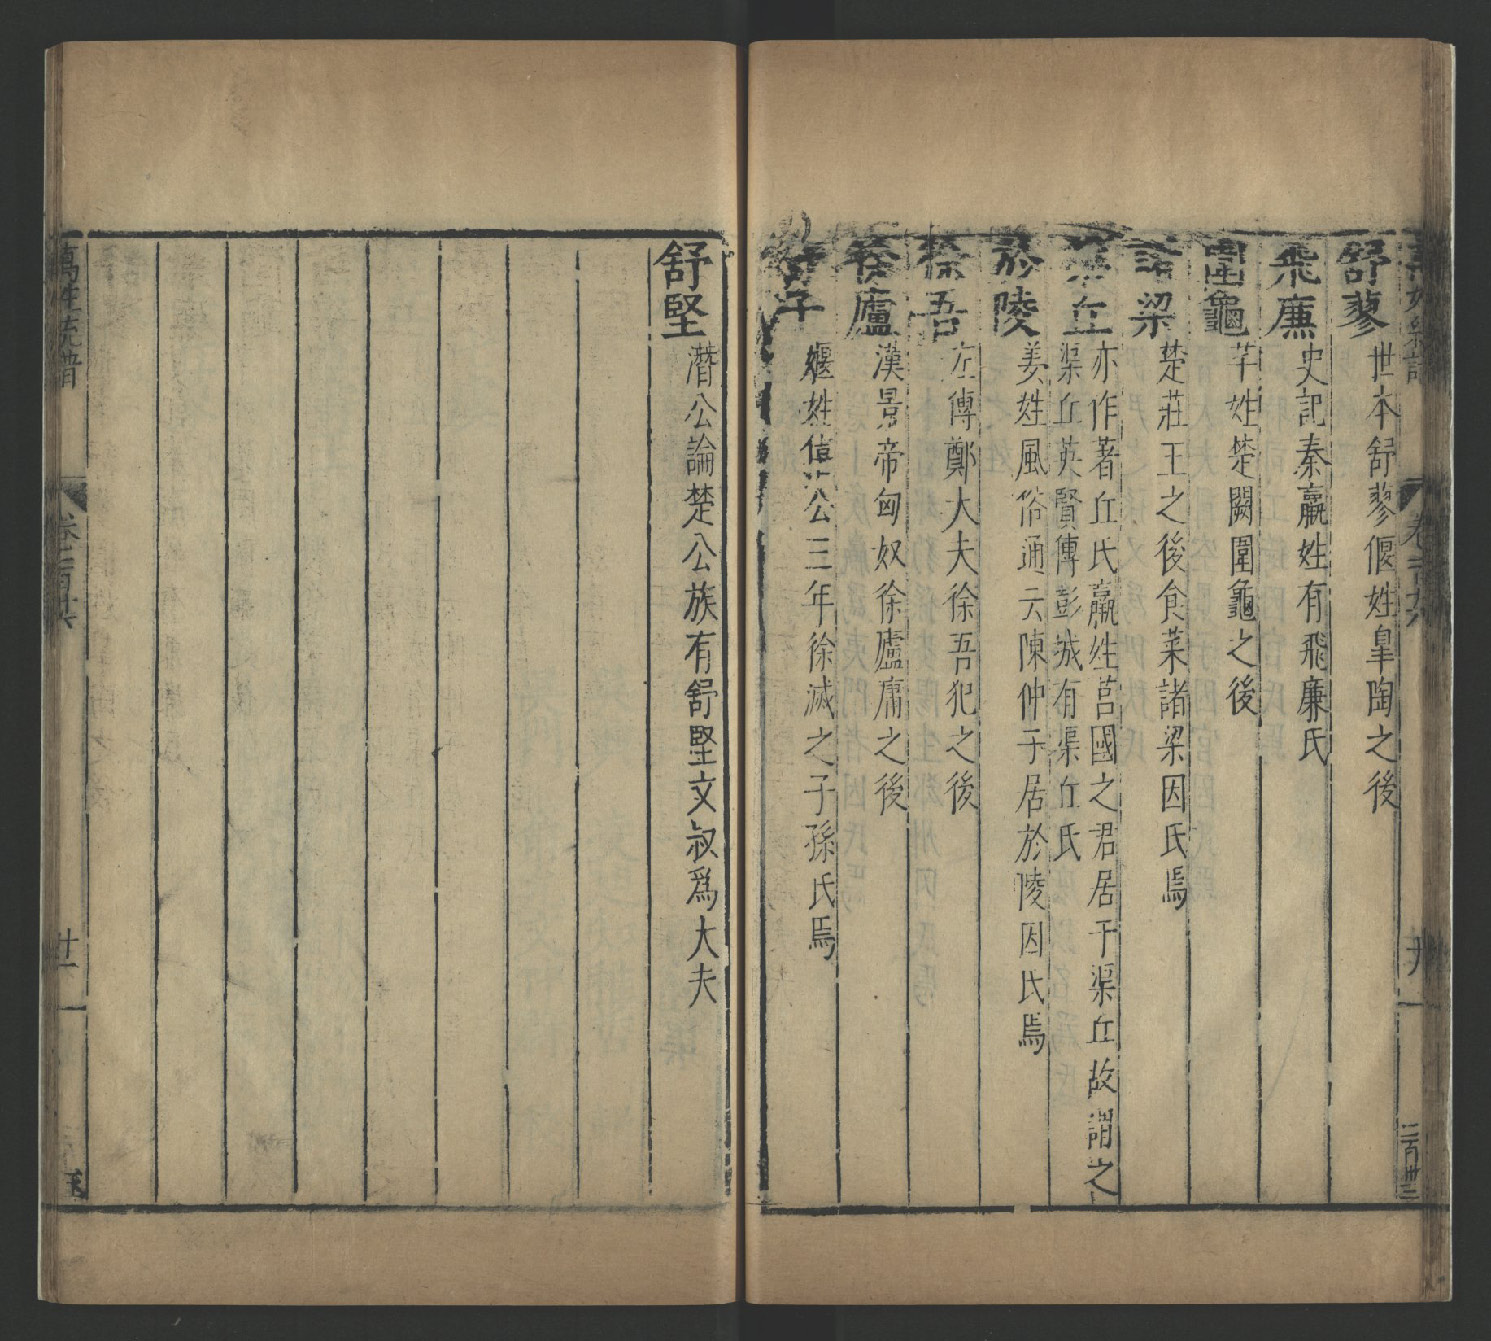 舒蓼
世本舒蓼偃姓皐陶之後
飛廉
史記秦嬴姓有飛廉氏
圍龜
芊姓楚闕圍龜之後
諸梁
楚莊王之後食菜諸梁因氏焉
渠丘
亦作著丘氏嬴姓莒國之君居于渠丘故謂之
渠丘英賢傳彭城有渠丘氏
於陵
姜姓風俗通云陳仲子居於陵因氏焉
徐吾
左傳鄭大夫徐吾犯之後
徐盧
漢景帝匈奴徐盧庸之後
章子
堰姓僖公三年徐滅之子孫氏焉
舒堅
潛公論楚公族有舒堅文叔爲大夫
萬姓統譜
卷三百卅六
廿一